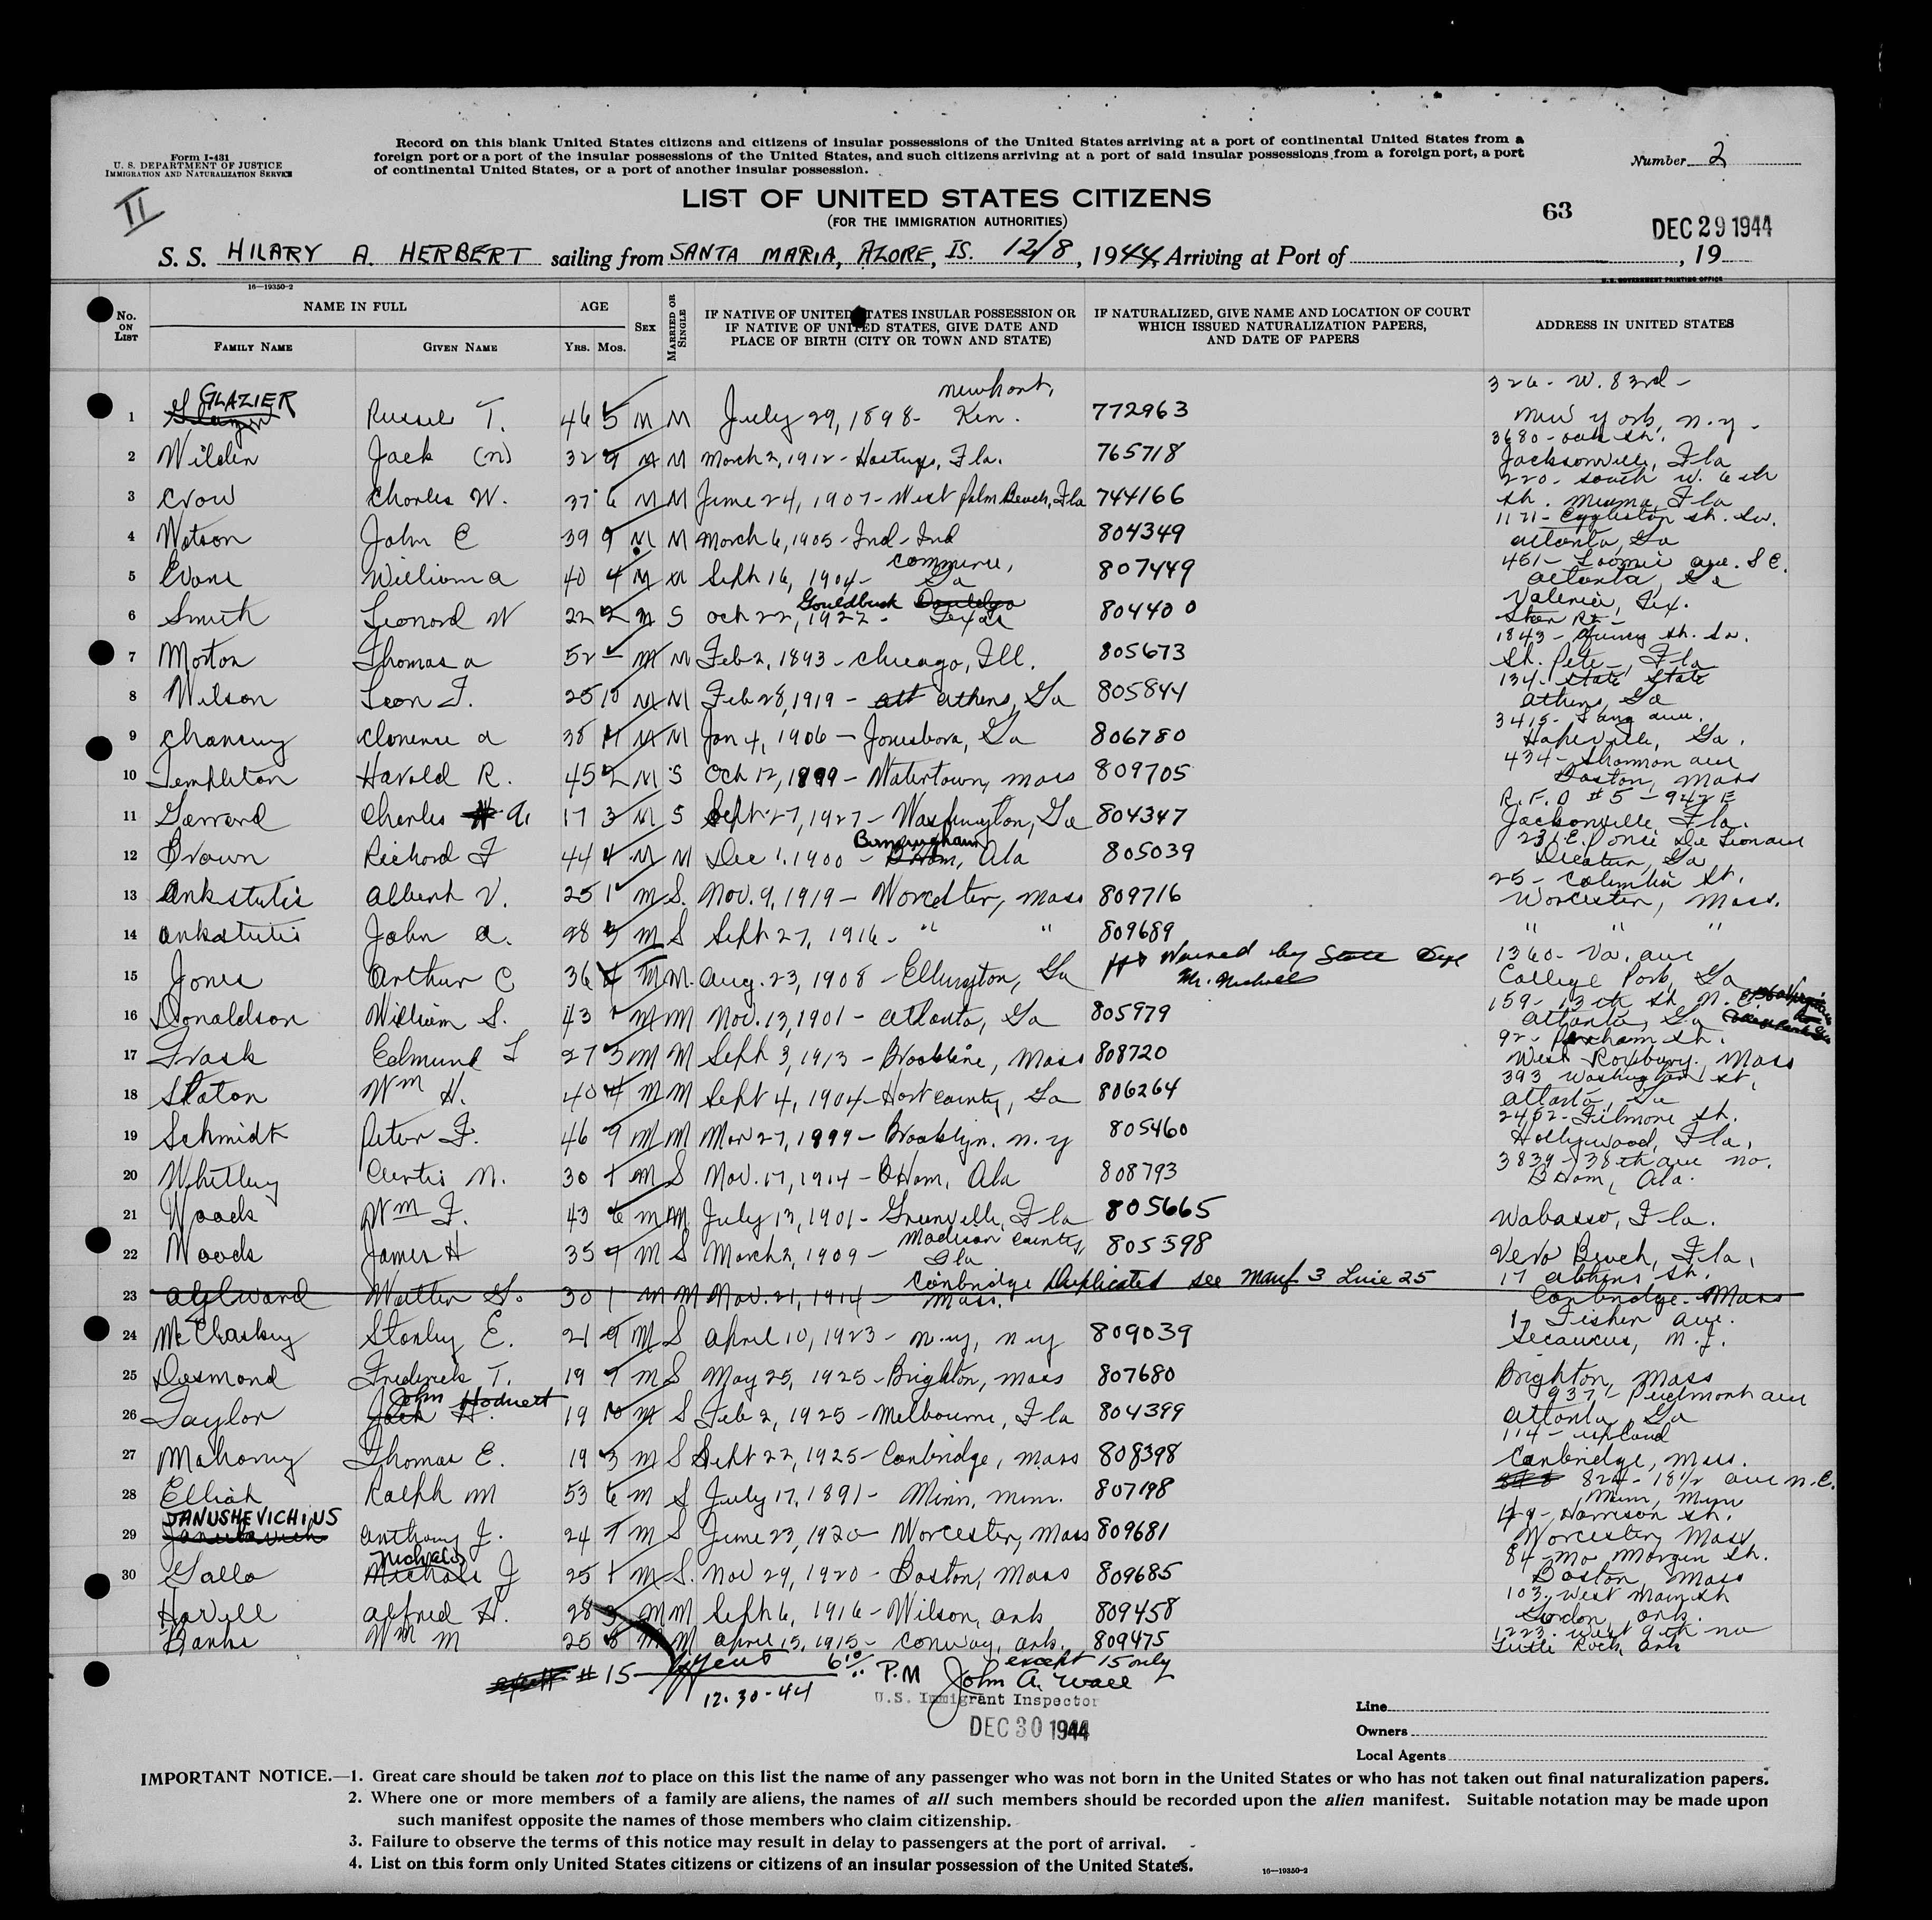 Form I-431
U. S. DEPARTMENT OF JUSTICE
IMMIGRATION AND NATURALIZATION SERVICE
II
Record on this blank United States citizens and citizens of insular possessions of the United States arriving at a port of continental United States from a
foreign port or a port of the insular possessions of the United States, and such citizens arriving at a port of said insular possessions from a foreign port, a port
of continental United States, or a port of another insular possession.
Number 2
LIST OF UNITED STATES CITIZENS
(FOR THE IMMIGRATION AUTHORITIES)
63
DEC 29 1944
S. S. HILARY A. HERBERT sailing from SANTA MARIA, AZORE, IS. 12/8, 1944, Arriving at Port of , 19
16—19350-2
U. S. GOVERNMENT PRINTING OFFICE
No. ON LIST
NAME IN FULL
FAMILY NAME GIVEN NAME
AGE
YRS. MOS.
SEX
MARRIED OR SINGLE
IF NATIVE OF UNITED STATES INSULAR POSSESSION OR
IF NATIVE OF UNITED STATES, GIVE DATE AND
PLACE OF BIRTH (CITY OR TOWN AND STATE)
IF NATURALIZED, GIVE NAME AND LOCATION OF COURT
WHICH ISSUED NATURALIZATION PAPERS,
AND DATE OF PAPERS
ADDRESS IN UNITED STATES
1 GLAZIER Russel T. 46 5 M M July 29, 1898 - Newport, Ken. 772963 326 - W. 83rd - New York, N.Y.
2 Wilden Jack (n) 32 9 M M March 2, 1912 - Hastings, Fla. 765718 3680 - Oak St. Jacksonville, Fla
3 Crow Charles W. 37 6 M M June 24, 1907 - West Palm Beach, Fla 744166 220 - South W. 6 th St. Miama, Fla
4 Watson John C 39 9 M M March 6, 1905 - Ind - Ind 804349 1171 - Eggleston St. Sw. Atlanta, Ga
5 Evans William A 40 4 M M Sept 16, 1904 - Commerce, Ga 807449 451 - Loomis Ave. S E. Atlanta, Ga
6 Smith Leonard W 22 2 M S Oct 22, 1922 - Gouldbusk Texas 804400 Valeria, Tex. Star Rt -
7 Morton Thomas A 52 - M M Feb 2, 1893 - Chicago, Ill. 805673 1843 - Quincy St. So. St. Pete -, Fla
8 Wilson Leon F. 25 10 M M Feb 28, 1919 - Athens, Ga 805844 134 - State State Athens, Ga
9 Chancey Clarence A 38 11 M M Jan 4, 1906 - Jonesboro, Ga 806780 3415 - Lang Ave. Hapeville, Ga.
10 Templeton Harold R. 45 2 M S Oct 12, 1899 - Watertown, Mass 809705 434 - Shannon Ave Boston, Mass
11 Garrard Charles A. 17 3 M S Sept 27, 1927 - Washington, Ga 804347 R. F. D #5 - 942 E Jacksonville, Fla.
12 Brown Richard F 44 4 M M Dec 1, 1900 - Birmingham Ala 805039 231 E. Ponce De Leon Ave Decatur, Ga
13 Ankstutis Albert V. 25 1 M S. Nov. 9, 1919 - Worcester, Mass 809716 25 - Columbia St. Worcester, Mass.
14 Ankstutis John A. 28 3 M S Sept 27, 1916 - " " 809689 " " "
15 Jones Arthur C 36 4 M M. Aug. 23, 1908 - Ellington, Ga Waived by State Dept Mr. Nichols 1360 - Va. Ave College Park, Ga
16 Donaldson William S. 43 1 M M Nov. 13, 1901 - Atlanta, Ga 805979 159 - 13 th St N. E. Atlanta, Ga
17 Trask Edmund L 27 3 M M Sept 3, 1913 - Brookline, Mass 808720 92 - Parham St. West Roxbury, Mass
18 Staton Wm H. 40 4 M M Sept 4, 1904 - Hart County, Ga 806264 393 Washington St, Atlanta, Ga
19 Schmidt Peter F. 46 9 M M Mar 27, 1899 - Brooklyn. N. Y 805460 2452 - Filmore St. Hollywood, Fla.
20 Whitley Curtis N. 30 1 M S Nov. 17, 1914 - B Ham, Ala 808793 3839 - 38 th Ave No. B Ham, Ala.
21 Woods Wm F. 43 6 M M. July 13, 1901 - Greenville, Fla 805665 Wabasso, Fla.
22 Woods James H 35 9 M S March 2, 1909 - Madison County, Fla 805598 Vero Beach, Fla.
23 Aylward Walter G. 30 1 M M Nov. 21, 1914 - Cambridge Mass. Duplicated see Manf 3 Line 25 17 Athens St. Cambridge - Mass
24 McCluskey Stanley E. 21 9 M S April 10, 1923 - N.Y, N Y 809039 17 Fisher Ave. Secaucus, N. J.
25 Desmond Frederick T. 19 7 M S May 25, 1925 - Brighton, Mass 807680 Brighton, Mass
26 Taylor John Hodnett 19 10 M S Feb 2, 1925 - Melbourne, Fla 804399 937 - Piedmont Ave Atlanta, Ga
27 Mahoney Thomas E. 19 3 M S Sept 22, 1925 - Cambridge, Mass 808398 114 - Upland Cambridge, Mass.
28 Elliott Ralph M 53 6 M S July 17, 1891 - Minn, Minn. 807198 824 - 18 1/2 Ave N. E. Minn, Minn
29 JANUSHEVICHIUS Anthony J. 24 7 M S June 23, 1920 - Worcester, Mass 809681 49 - Harrison St. Worcester, Mass
30 Gallo Nicholas J 25 1 M S. Nov 29, 1920 - Boston, Mass 809685 84 - No Morgin St. Boston, Mass
Harell Alfred H. 28 3 M M Sept 6, 1916 - Wilson, Ark 809458 103. West Main St Gordon, Ark.
Banks Wm M 25 8 M M April 15, 1915 - Conway, Ark. 809475 1223. West 9 th No Little Rock, Ark
# 15 6 10 P.M except 15 only
12-30-44 John A. Wall
U.S. Immigrant Inspector
DEC 30 1944
Line
Owners
Local Agents
IMPORTANT NOTICE.—1. Great care should be taken not to place on this list the name of any passenger who was not born in the United States or who has not taken out final naturalization papers.
2. Where one or more members of a family are aliens, the names of all such members should be recorded upon the alien manifest. Suitable notation may be made upon
such manifest opposite the names of those members who claim citizenship.
3. Failure to observe the terms of this notice may result in delay to passengers at the port of arrival.
4. List on this form only United States citizens or citizens of an insular possession of the United States.
16—19350-2